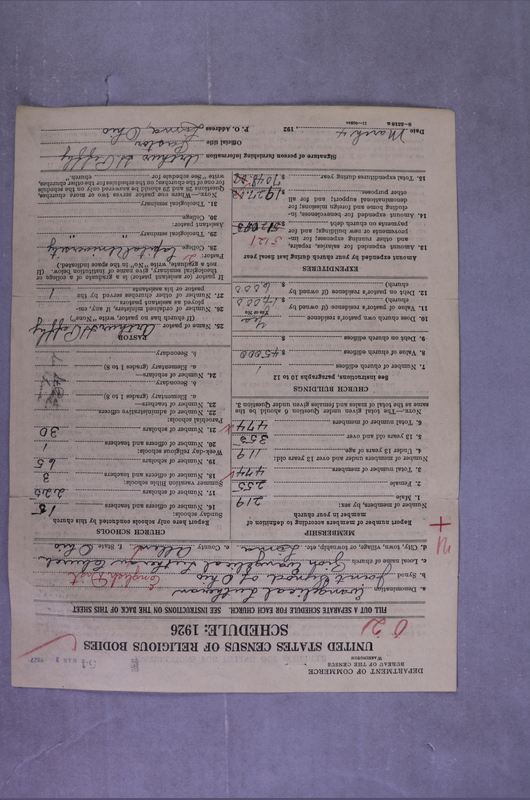 DEPARTMENT OF COMMERCE
BUREAU OF THE CENSUS
WASHINGTON
UNITED STATES CENSUS OF RELIGIOUS BODIES
SCHEDULE: 1926
FILL OUT A SEPARATE SCHEDULE FOR EACH CHURCH. SEE INSTRUCTIONS ON THE BACK OF THIS SHEET
a. Denomination Evangelical Lutheran
b. Synod Joint Synod of Ohio English Dist
c. Local name of church Zion Evangelical Lutheran Church
d. City, town, village, or township, etc. Lima e. County Allen f. State Ohio
MEMBERSHIP
Report number according to definition of member in your church
Number of members, by sex:
1. Male 219
2. Female 255
3. Total number of members 474
Number of members under and over 13 years old:
4. Under 13 years of age 119
5. 13 years old and over 355
6. Total number of members 474
NOTE.—The total given under Question 6 should be the same as the total of males and females given under Question 3.
CHURCH BUILDINGS
See instructions, paragraphs 10 to 12
7. Number of church edifices 1
8. Value of church edifices $ 45000
9. Debt on church edifices $
10. Does church own pastor's residence yes
11. Value of pastor's residence (if owned by church) $ 7000
12. Debt on pastor's residence (if owned by church) $ 6000
EXPENDITURES
Amount expended by your church during last fiscal year
13. Amount expended for salaries, repairs, and other running expenses; for improvements or new building; and for payments on church debt $ 5121
14. Amount expended for benevolences, including home and foreign missions; for denominational support; and for all other purposes $ 1927
15. Total expenditures during year $ 7048
CHURCH SCHOOLS
Report here only schools conducted by this church
Sunday schools:
16. Number of officers and teachers
17. Number of scholars 225
Summer vacation Bible schools:
18. Number of officers and teachers 3
19. Number of scholars 65
Week-day religious schools:
20. Number of officers and teachers 1
21. Number of scholars 30
Parochial schools:
22. Number of administrative officers
23. Number of teachers—
a. Elementary (grades 1 to 8)
b. Secondary
24. Number of scholars—
a. Elementary (grades 1 to 8)
b. Secondary
PASTOR
25. Name of pastor
(If church has no pastor, write "None")
26. Number of ordained ministers, if any, employed as assistant pastors
27. Number of other churches served by the pastor or his assistants 1
If pastor (or assistant pastor) is a graduate of a college or theological seminary, give name of institution below. (If not a graduate, write "No" in the space indicated.)
Pastor:
28. College Capital University
29. Theological seminary " "
Assistant pastor:
30. College
31. Theological seminary
Signature of person furnishing information
Official title Pastor
P. O. Address Lima, Ohio
Date March 4, 192